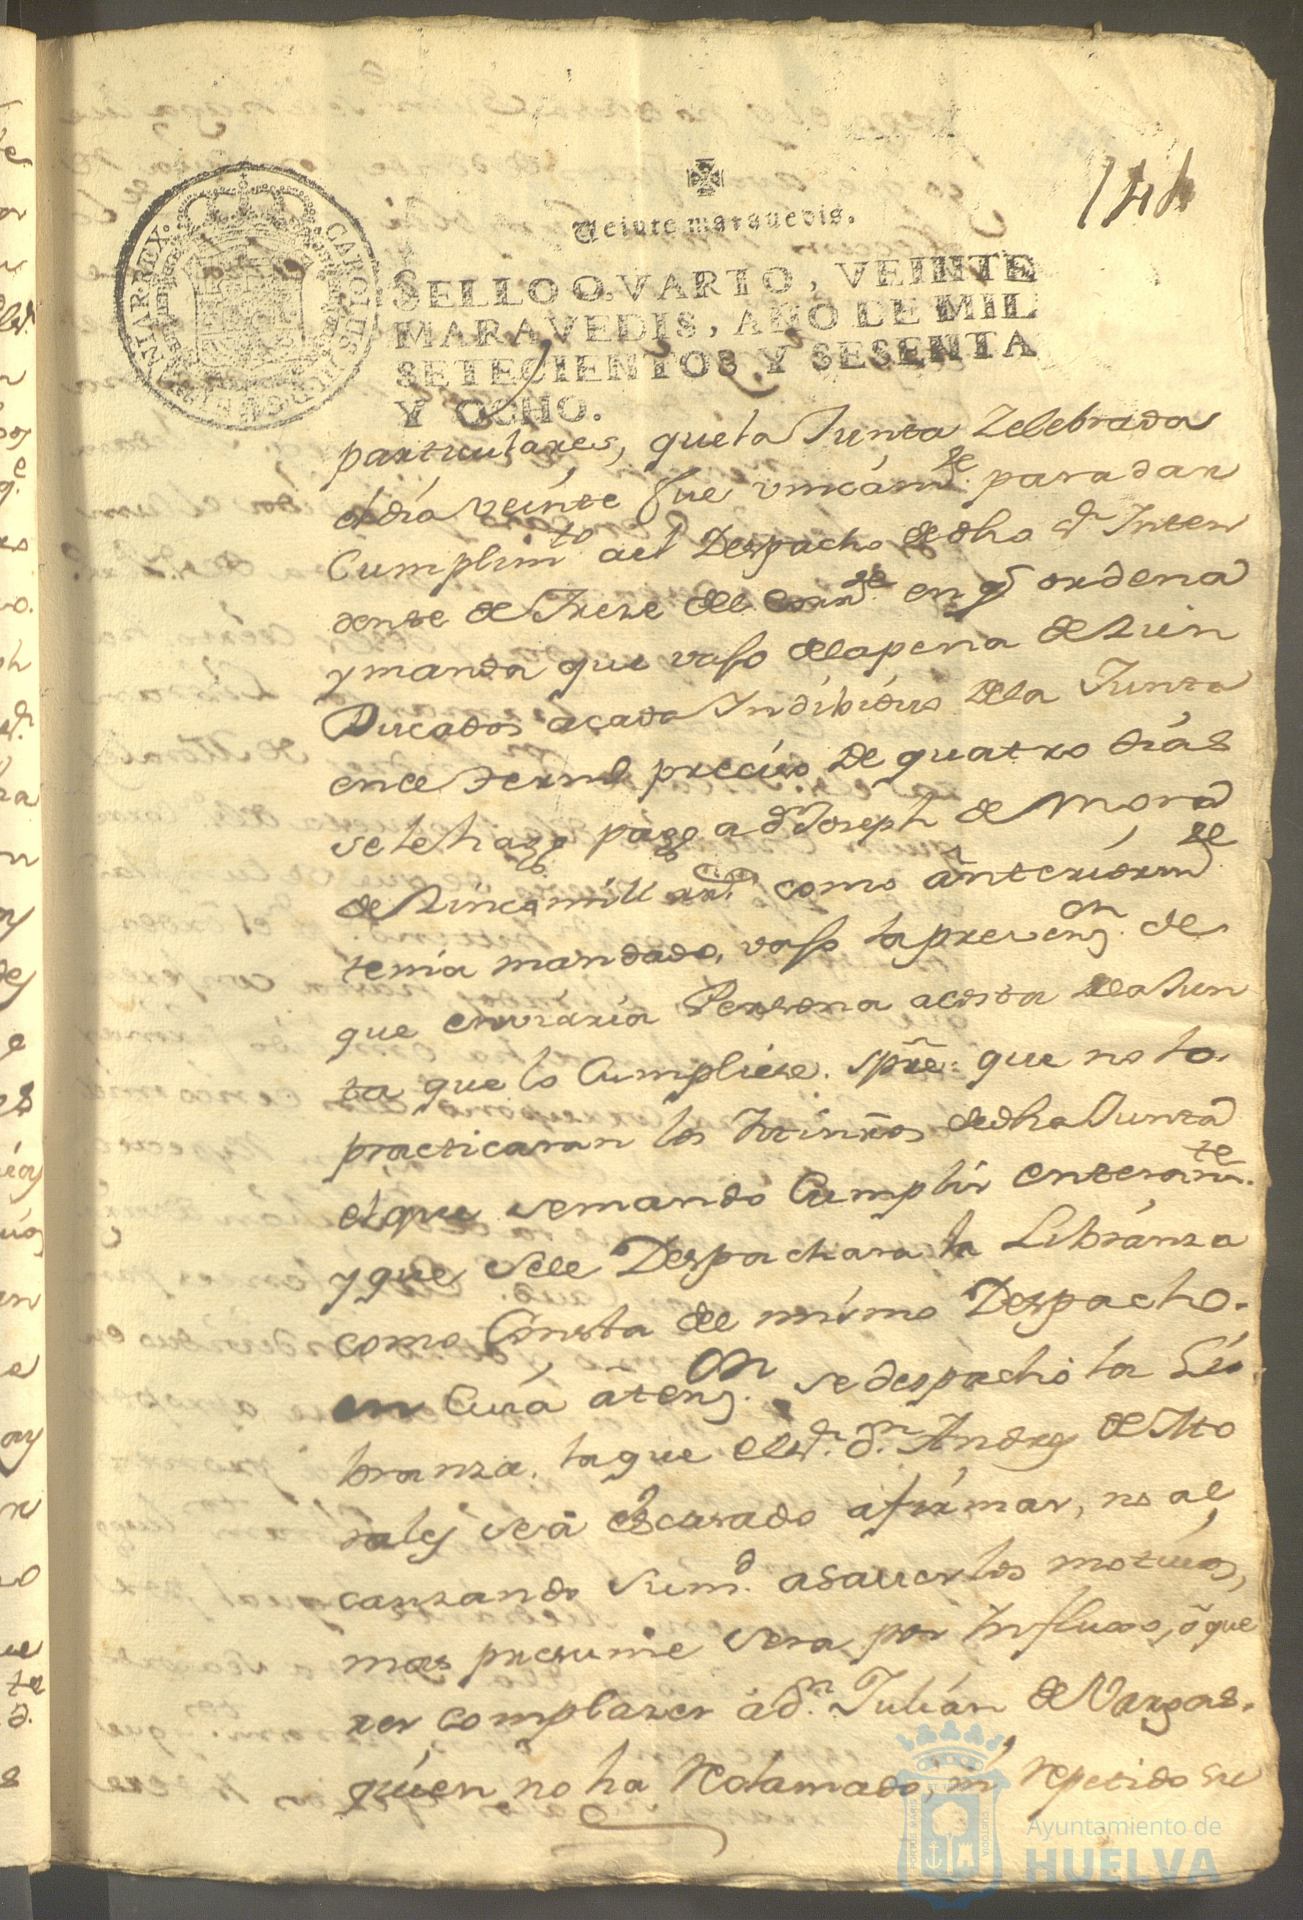 144
Veinte maravedis.
SELLO QVARTO, VEINTE
MARAVEDIS, AÑO DE MIL
SETECIENTOS Y SESENTA
Y OCHO.
CAROLUS III D G HISPANIAR REX
particulares, que la Junta Zelebrada
el día veinte fue unicám.te para dar
Cumplim.to al Despacho de dho s.r Inten
dente de Treze del corr.te en q.e ordena
y manda que vaſo de la pena de Zien
Ducados a cada Indibiduo de la Junta
en el termº preciso de quatro días
se le haga pago a d.n Joseph de Mora
de Zinco mill rr.s como ánteriorm.te
tenia mandado, vaſo la preven.on de
que enviaría Persona a costa de la Jun
ta que lo Cumpliese. spre: que no lo
practicaran los Yndiv.os de dha Junta
el que se mando Cumplir enteram.te
y que se le Despachara la Libranza
como Consta del mismo Despacho.
en Cuia áten.on se despachó la Li
branza, la que el s.r d.n Andres de Mo
rales se á escusado a firmar, no al
canzando su m.d a saver los motivos,
mas presume sera por Influxo, ó que
rer complazer á d.n Julián de Vargas.
quien no ha Reclamado, ni repetido su
Ayuntamiento de
HUELVA